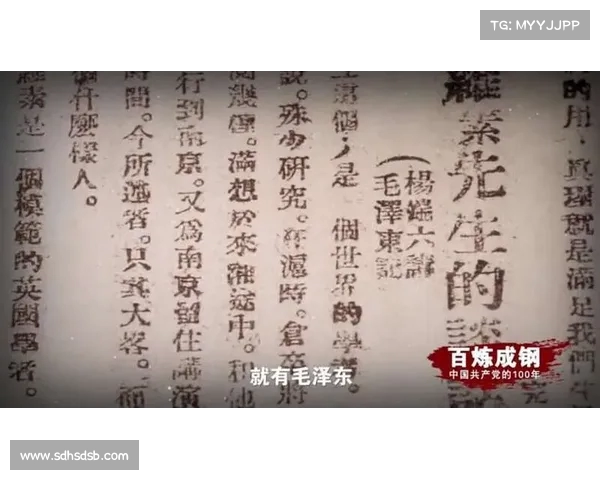 TG: MYYJJPP
的用,真理就是滿足我們
羅素先生的談
(楊端六講
毛澤東記
是 個世界的學者。
說。殊少研究。在滬時。倉卒將
滿想於來湘途中。和他
行到南京。又爲南京留住講演
時間。今所述者。只其大畧。而
個什麽樣人。
羅素是一個模範的英國學者。
百炼成钢
中国共产党的100年
就有毛泽东
www.sdhsdsb.com